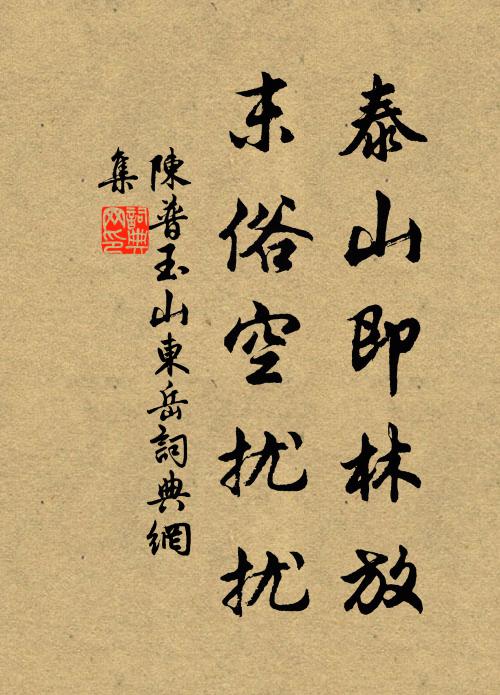 泰山即林放
末俗空扰扰
陳普玉山東岳詞典網
集
詞典网印